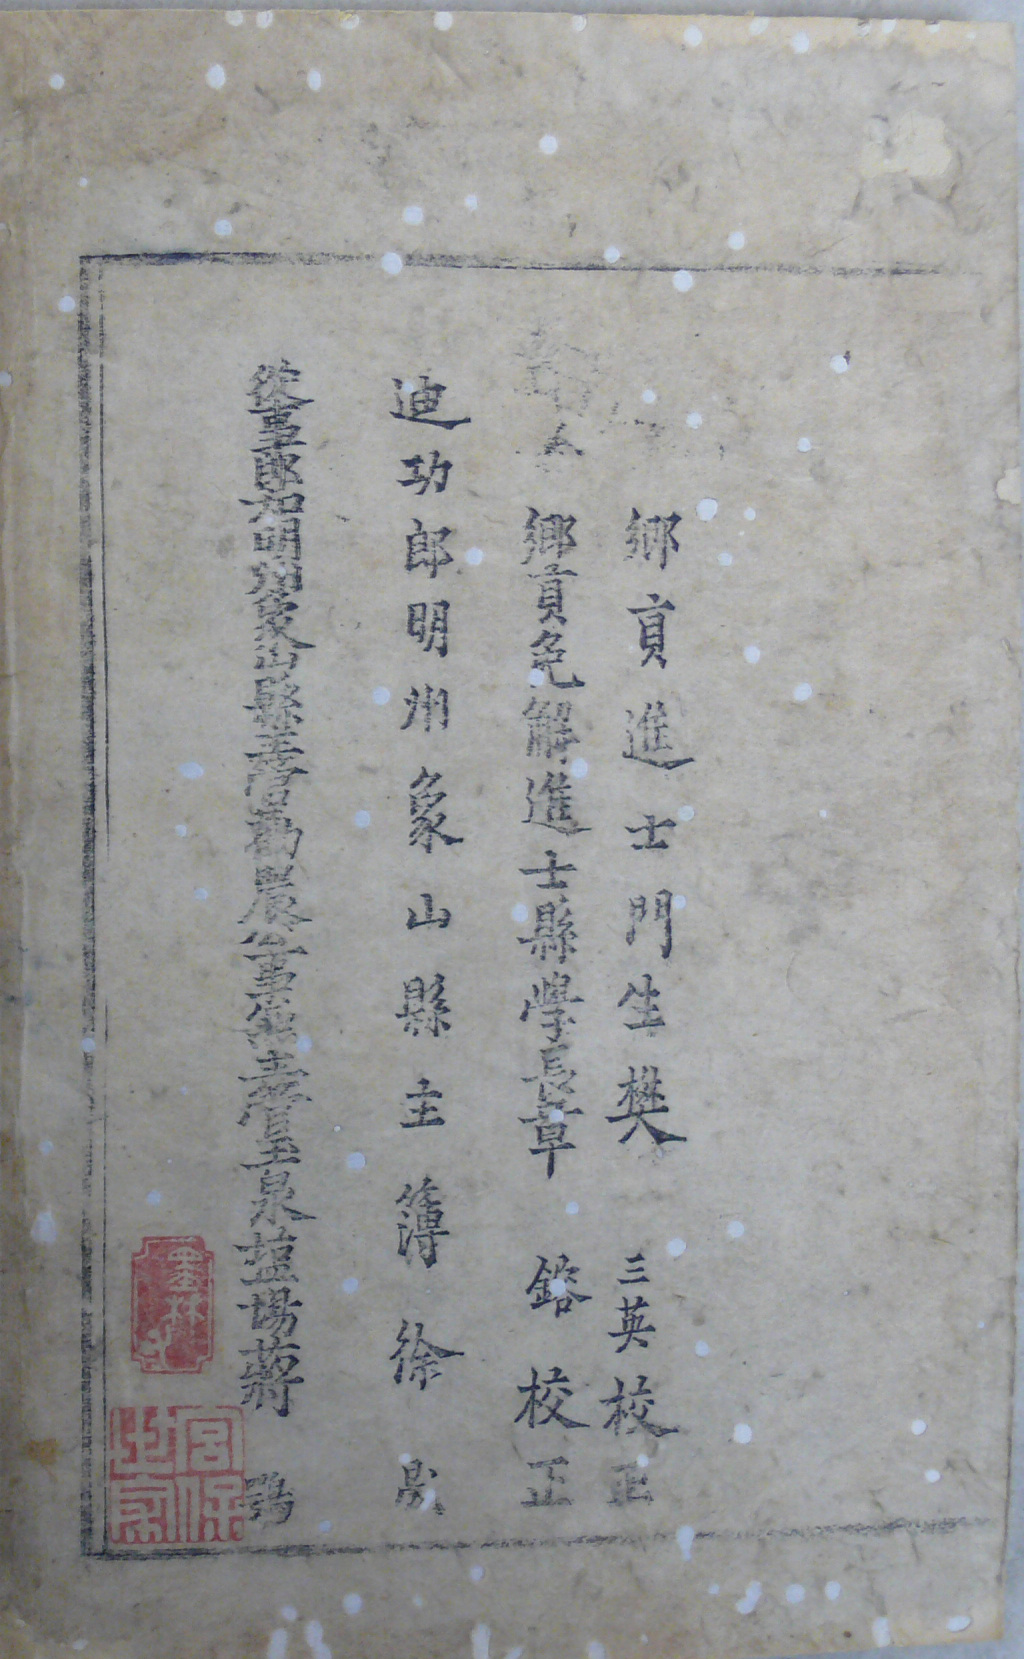 鄉貢進士門生樊 三英校正
鄉貢免解進士縣學長章 鎔校正
迪功郎明州象山縣主簿徐 晟
從事郎知明州象山縣主管勸農公事兼主管玉泉塩場蔣 鶚
墨林
宮保世家